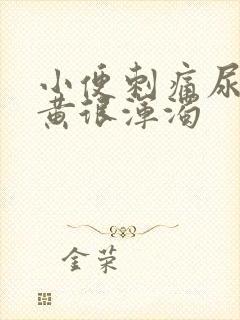 小便刺痛尿
黄很浑浊
金荣